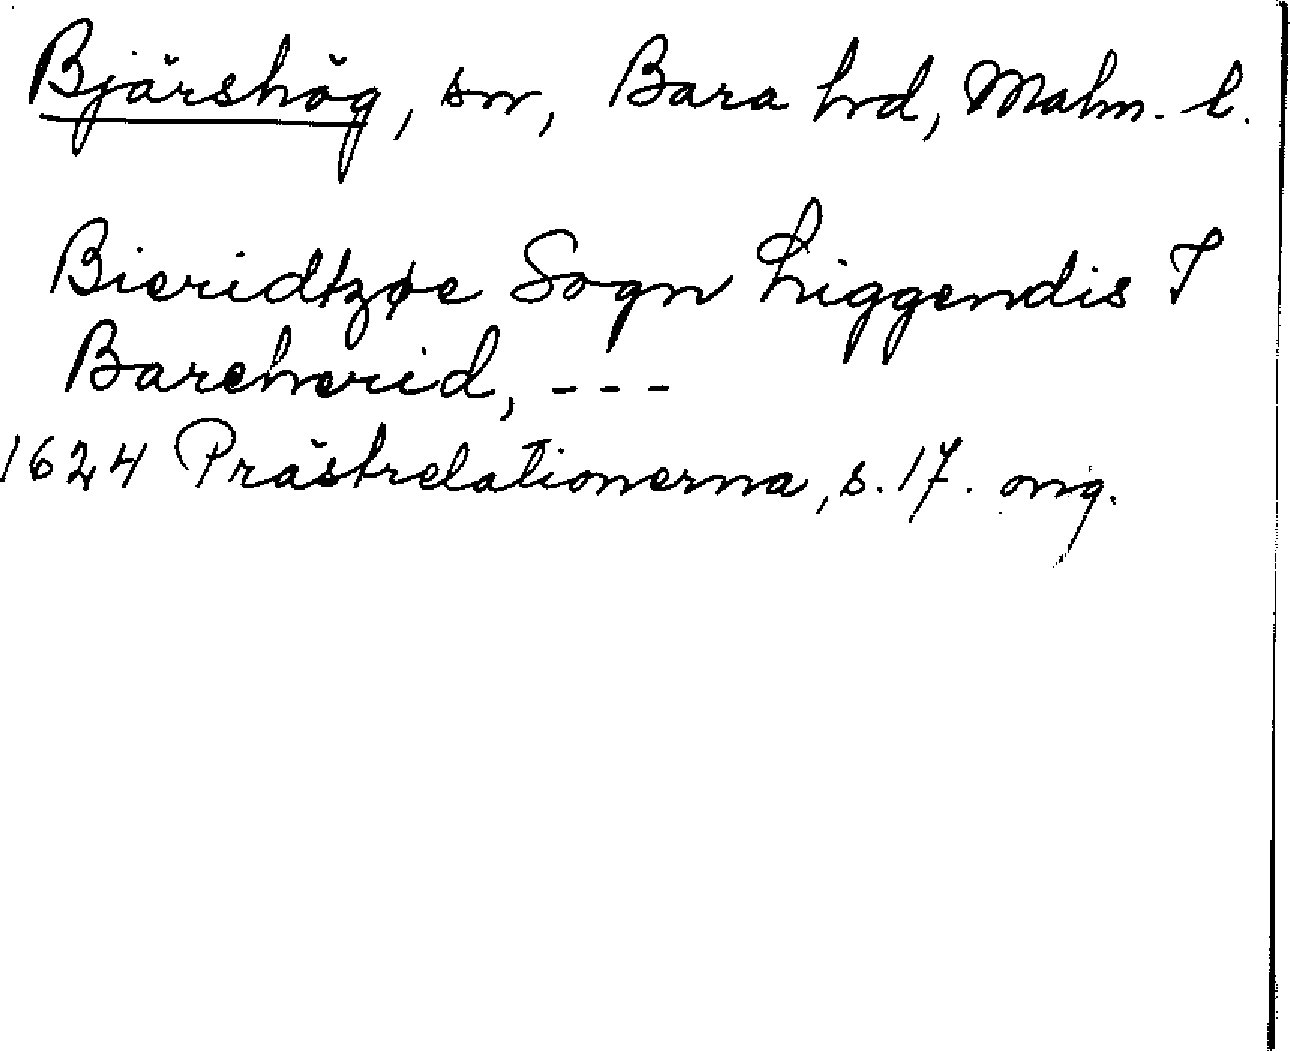 Bjärshög, sn, Bara hrd, Malm. l.
Bieridtzøe Sogn Liggendis I
Bareherid, ---
1624 Prästrelationerna, s. 17. orig.